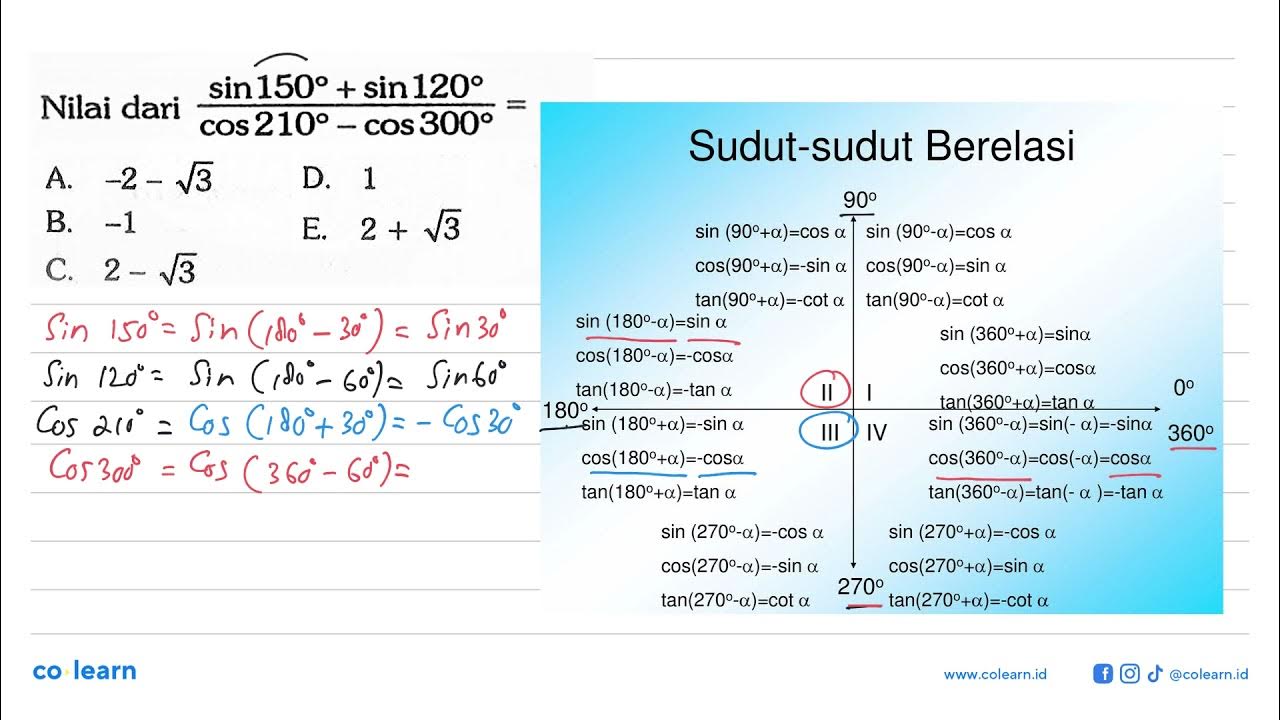 Nilai dari sin 150° + sin 120° / cos 210° – cos 300° =
A. –2 – √3
D. 1
B. –1
E. 2 + √3
C. 2 – √3
Sin 150° = Sin (180° – 30°) = Sin 30°
Sin 120° = Sin (180° – 60°) = Sin 60°
Cos 210° = Cos (180° + 30°) = – Cos 30°
Cos 300° = Cos (360° – 60°) =
Sudut-sudut Berelasi
90º
sin (90º+α)=cos α
cos(90º+α)=-sin α
tan(90º+α)=-cot α
sin (90º-α)=cos α
cos(90º-α)=sin α
tan(90º-α)=cot α
sin (180º-α)=sin α
cos(180º-α)=-cosα
tan(180º-α)=-tan α
sin (360º+α)=sinα
cos(360º+α)=cosα
tan(360º+α)=tan α
II I
0º
180º
III IV
360º
sin (180º+α)=-sin α
cos(180º+α)=-cosα
tan(180º+α)=tan α
sin (360º-α)=sin(- α)=-sinα
cos(360º-α)=cos(-α)=cosα
tan(360º-α)=tan(- α )=-tan α
sin (270º-α)=-cos α
cos(270º-α)=-sin α
tan(270º-α)=cot α
270º
sin (270º+α)=-cos α
cos(270º+α)=sin α
tan(270º+α)=-cot α
co learn
www.colearn.id
@colearn.id